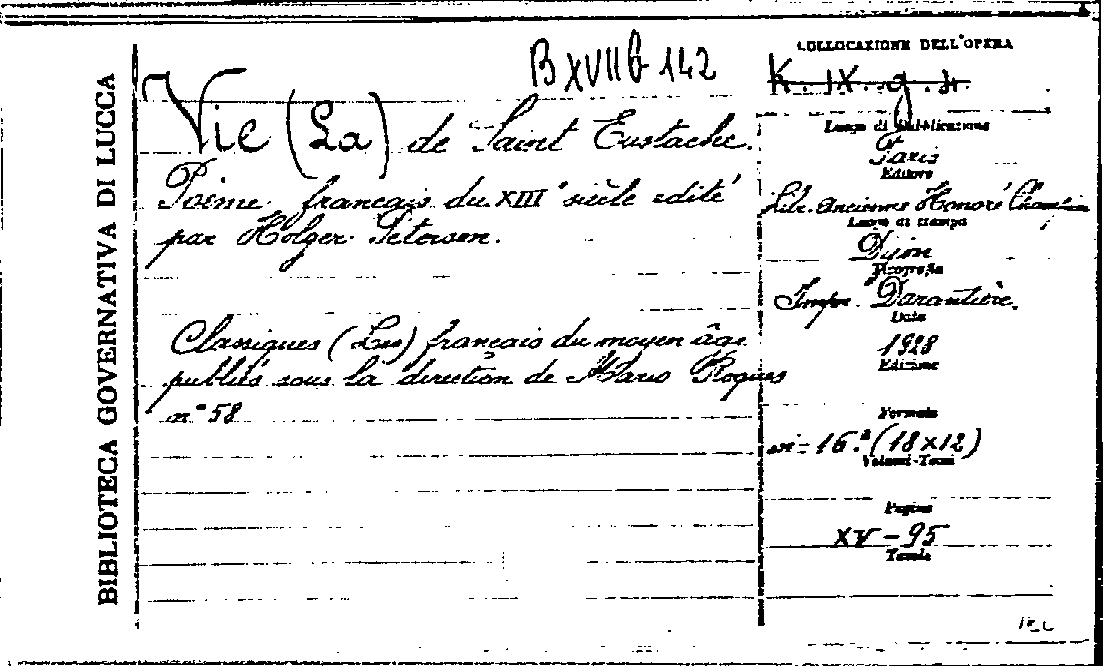 BIBLIOTECA GOVERNATIVA DI LUCCA
B XVII G 142
Vie (La) de Saint Eustache.
Poème français du XIII e siècle edité
par Holger Petersen.
Classiques (Les) français du moyen âge
publiés sous la direction de Mario Roques
n° 58
COLLOCAZIONE DELL'OPERA
K. IX. g. 4.
Luogo di Pubblicazione
Paris
Editore
Libr. ancienne Honoré Champion
Luogo di stampa
Dijon
Tipografia
Impr. Darantière.
Data
1928
Edizione
Formato
in-16.° (18x12)
Volumi-Tomi
Pagine
XV - 95
Tavole